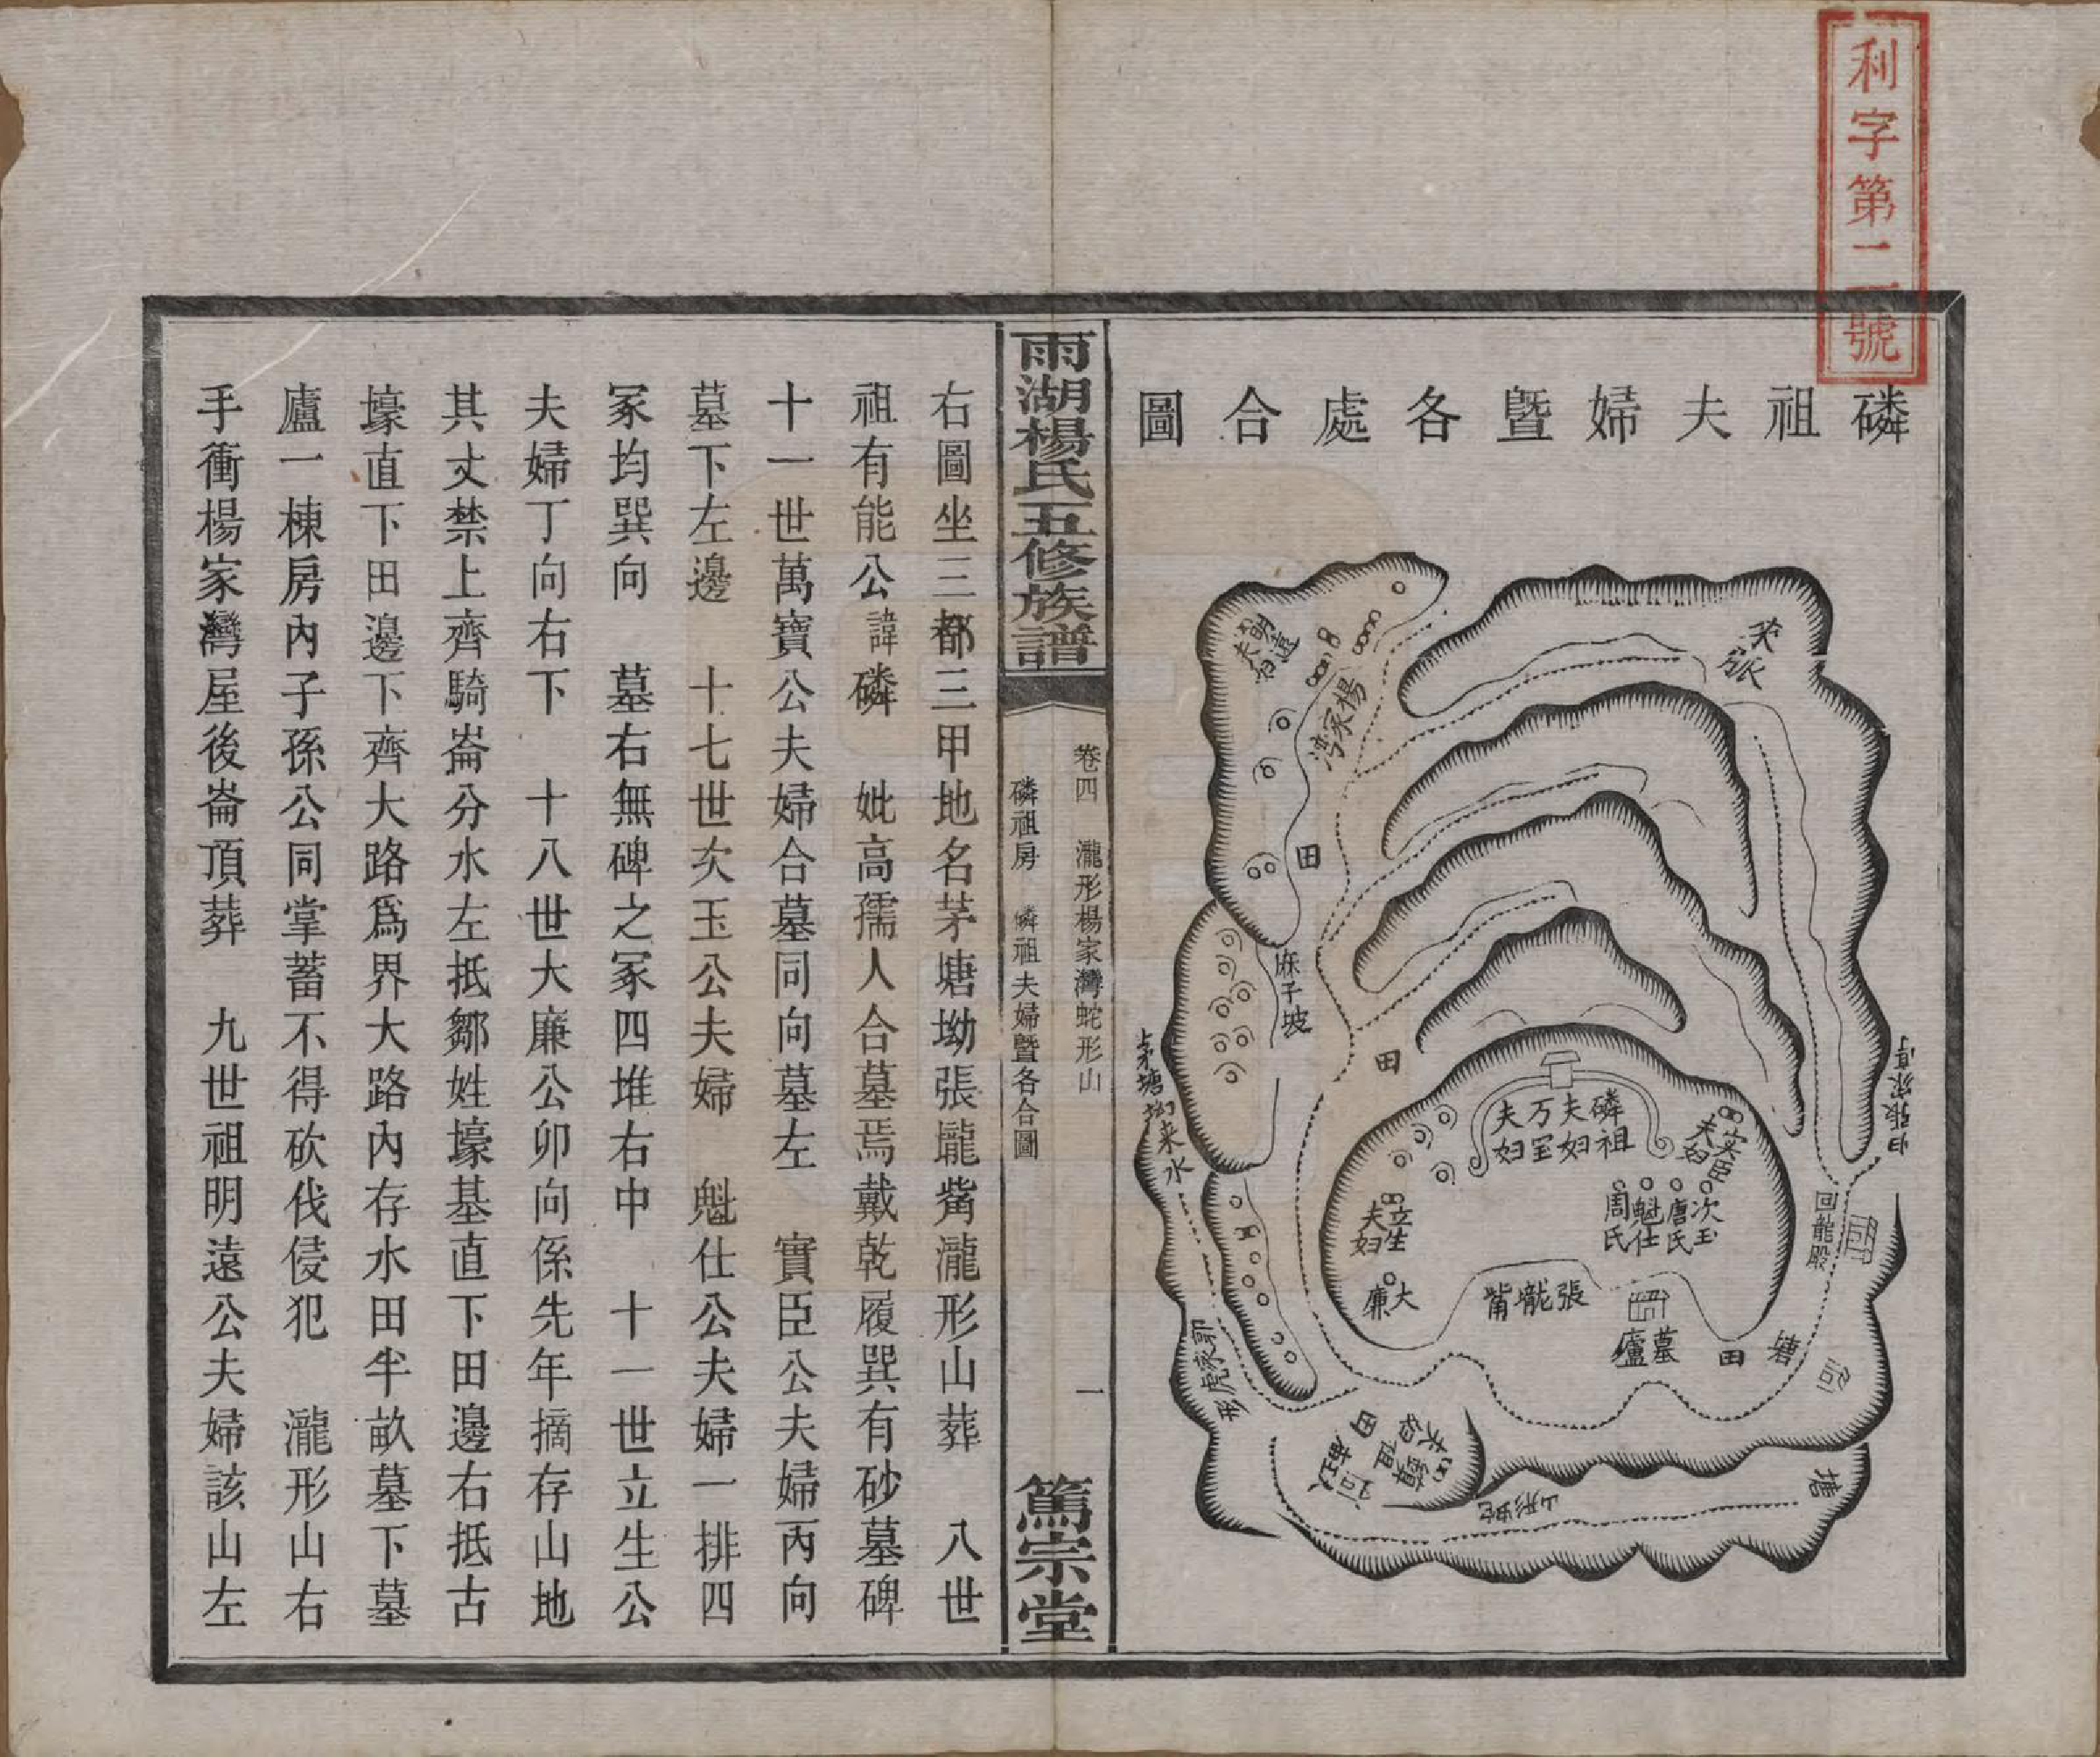 利字第二號
磷祖夫婦曁各處合圖
宋張
明遠夫婦
楊家湾
田
麻子坡
田
茅塘坳来水
归張家
磷祖夫妇
万宝夫妇
实臣夫妇
次玉
唐氏
魁仕
周氏
立生夫妇
大廉
張壠嘴
墓廬
田
塘
回龍殿
郭家虎形
田
蛇形山
塘
雨湖楊氏五修族譜
卷四 瀧形楊家灣蛇形山
磷祖房 憐祖夫婦曁各合圖
一
篤宗堂
右圖坐三都三甲地名茅塘坳張壠觜瀧形山葬 八世
祖有能公諱磷 妣高孺人合墓焉戴乾履巽有砂墓碑
十一世萬寶公夫婦合墓同向墓左 實臣公夫婦丙向
墓下左邊 十七世次玉公夫婦 魁仕公夫婦一排四
冢均巽向 墓右無碑之冢四堆右中 十一世立生公
夫婦丁向右下 十八世大廉公卯向係先年摘存山地
其丈禁上齊騎崙分水左抵鄒姓壕基直下田邊右抵古
壕直下田邊下齊大路爲界大路內存水田半畝墓下墓
廬一棟房內子孫公同掌蓄不得砍伐侵犯 瀧形山右
手衝楊家灣屋後崙頂葬 九世祖明遠公夫婦該山左